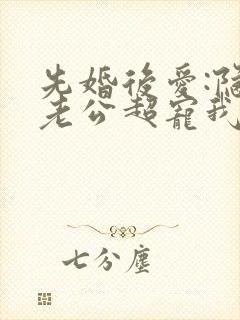 先婚後愛:
老公超寵我
七分塵